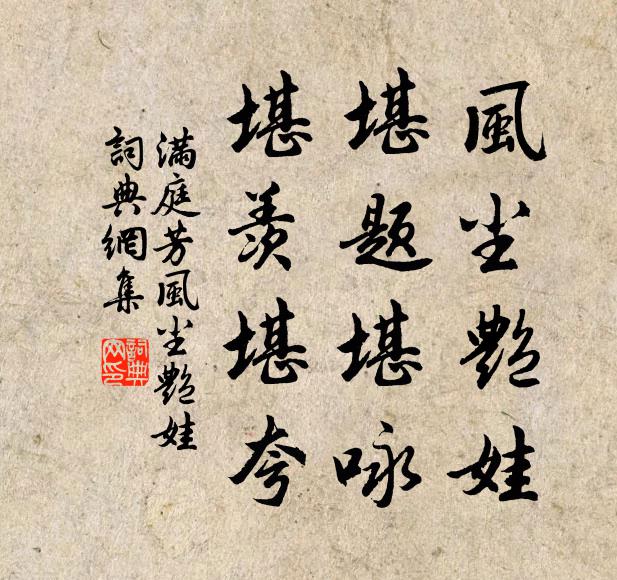 風尘艷娃
堪題堪咏
堪羨堪夸
滿庭芳風尘艷娃
詞典網集
詞典网印